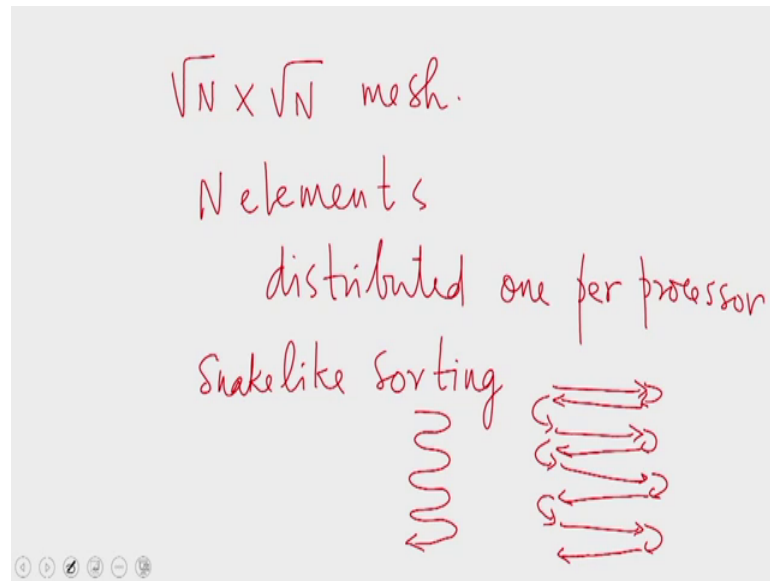 √N × √N mesh.
N elements
distributed one per processor
Snakelike Sorting